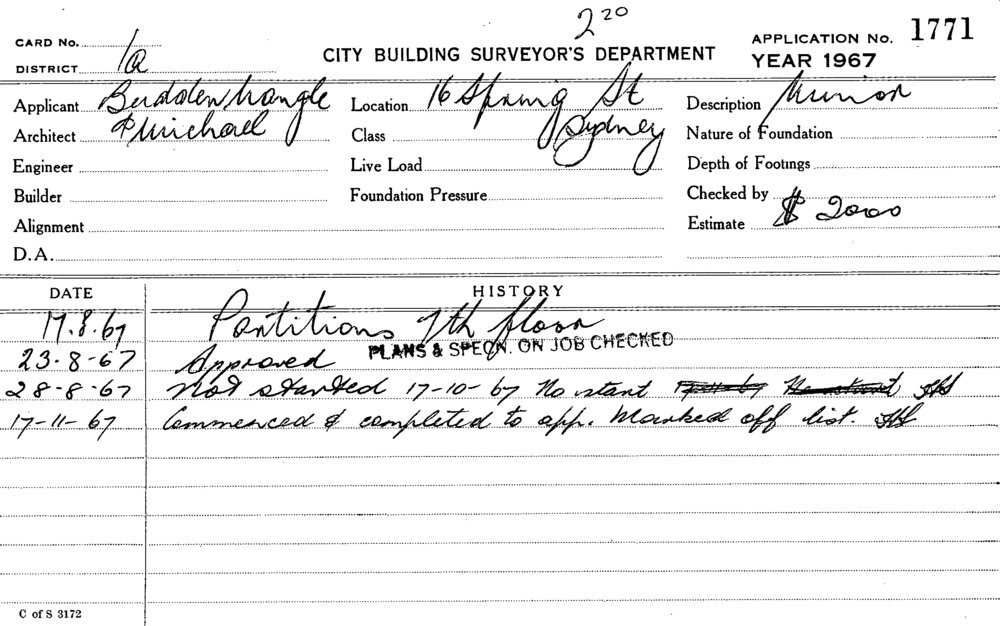 2 20
CARD No.
APPLICATION No. 1771
DISTRICT 1a
CITY BUILDING SURVEYOR'S DEPARTMENT
YEAR 1967
Applicant Budden Nangle
Location 16 Spring St
Description Minor
Architect & Michael
Class Sydney
Nature of Foundation
Engineer
Live Load
Depth of Footings
Builder
Foundation Pressure
Checked by
Alignment
Estimate $ 2000
D.A.
DATE
HISTORY
17.8.67 Partitions 7th floor
PLANS & SPECN. ON JOB CHECKED
23-8-67 Approved
28-8-67 Not started 17-10-67 No start
17-11-67 Commenced & completed to app. Marked off list.
C of S 3172